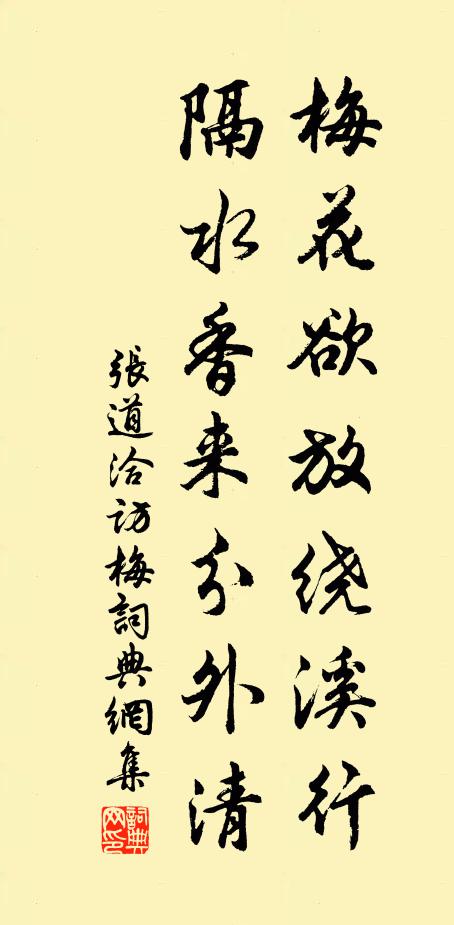 梅花欲放绕溪行
隔水香来分外清
張道洽访梅詞典網集
詞典网印